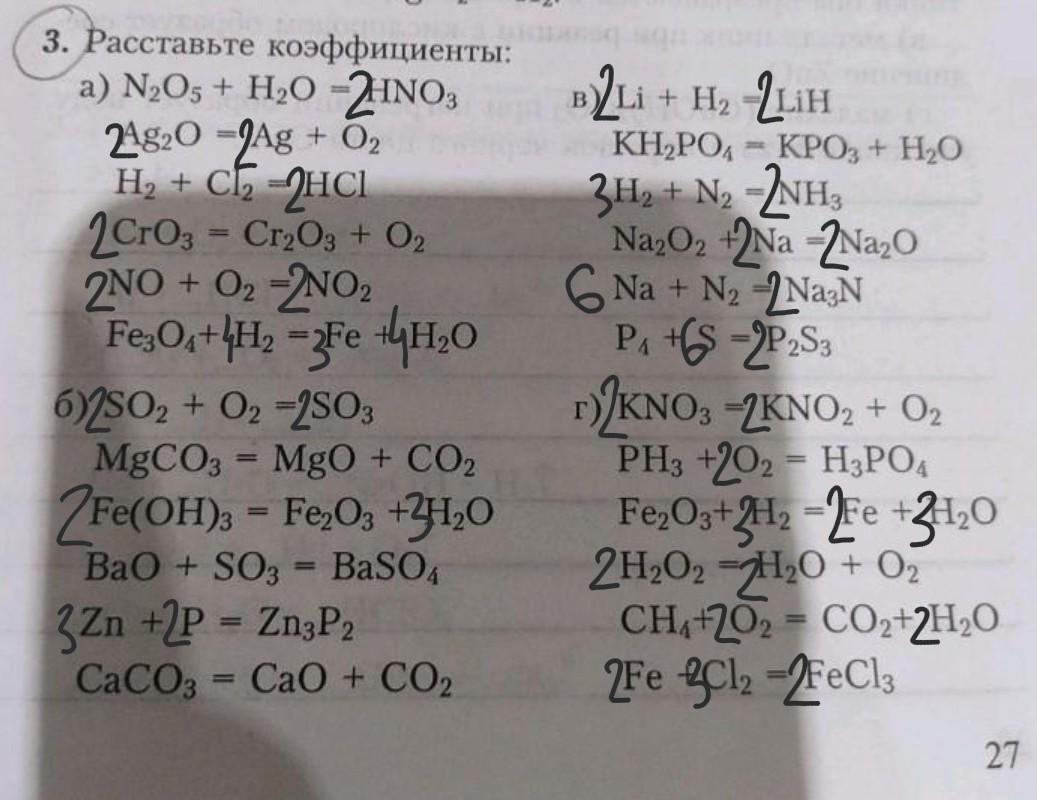 3. Расставьте коэффициенты:
а) N₂O₅ + H₂O = 2HNO₃
2Ag₂O = 2Ag + O₂
H₂ + Cl₂ = 2HCl
2CrO₃ = Cr₂O₃ + O₂
2NO + O₂ = 2NO₂
Fe₃O₄ + 4H₂ = 3Fe + 4H₂O
б) 2SO₂ + O₂ = 2SO₃
MgCO₃ = MgO + CO₂
2Fe(OH)₃ = Fe₂O₃ + 3H₂O
BaO + SO₃ = BaSO₄
3Zn + 2P = Zn₃P₂
CaCO₃ = CaO + CO₂
в) 2Li + H₂ = 2LiH
KH₂PO₄ = KPO₃ + H₂O
3H₂ + N₂ = 2NH₃
Na₂O₂ + 2Na = 2Na₂O
6Na + N₂ = 2Na₃N
P₄ + 6S = 2P₂S₃
г) 2KNO₃ = 2KNO₂ + O₂
PH₃ + 2O₂ = H₃PO₄
Fe₂O₃ + 3H₂ = 2Fe + 3H₂O
2H₂O₂ = 2H₂O + O₂
CH₄ + 2O₂ = CO₂ + 2H₂O
2Fe + 3Cl₂ = 2FeCl₃
27